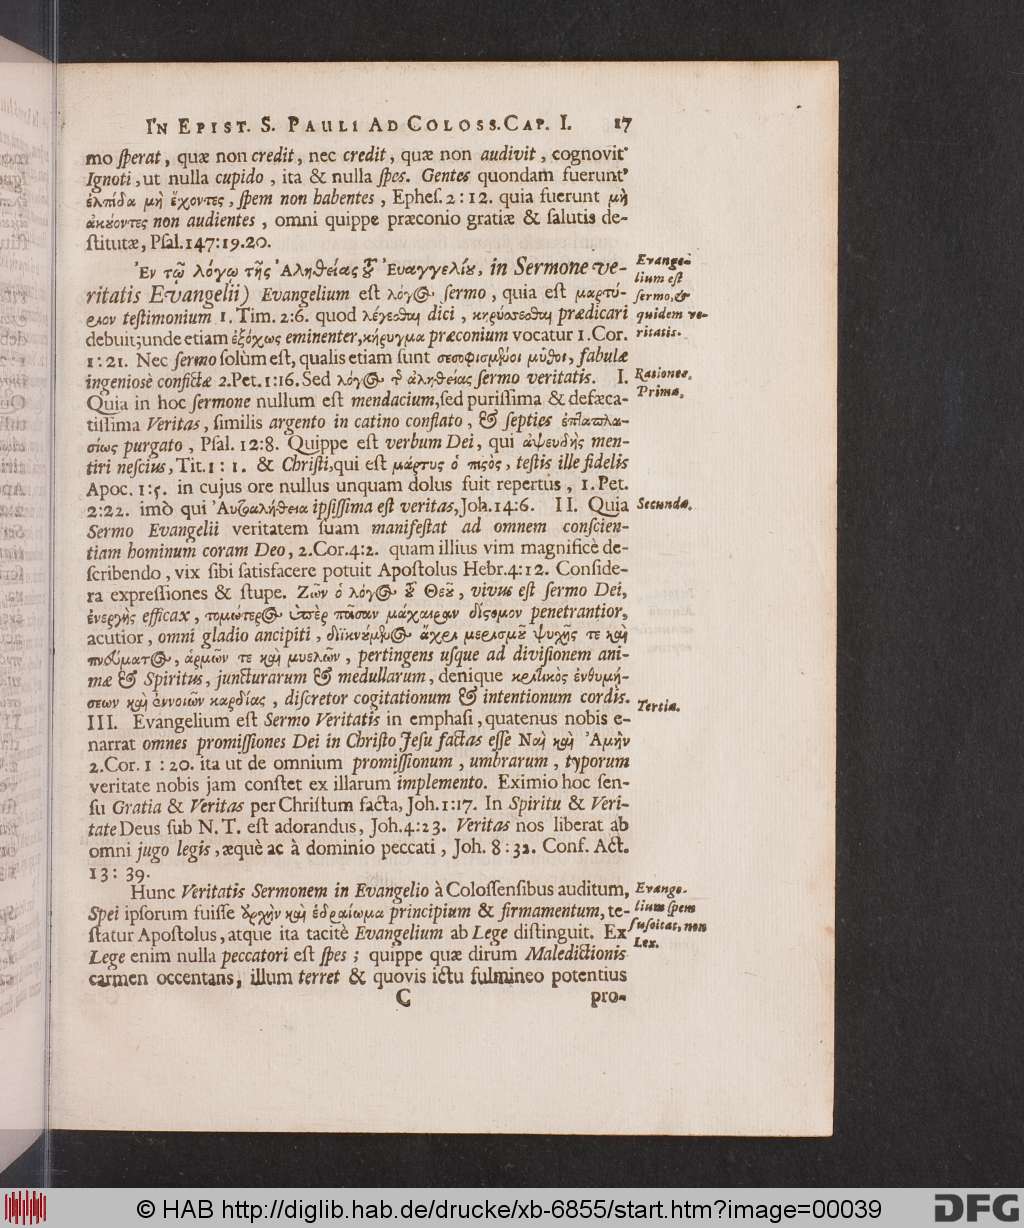 IN EPIST. S. PAULI AD COLOSS. CAP. I. 17
mo ſperat, quæ non credit, nec credit, quæ non audivit, cognovit
Ignoti, ut nulla cupido, ita & nulla ſpes. Gentes quondam fuerunt
ἐλπίδα μὴ ἔχοντες, ſpem non habentes, Epheſ. 2:12. quia fuerunt μὴ
ἀκȣ́οντες non audientes, omni quippe præconio gratiæ & ſalutis de-
ſtitutæ, Pſal. 147:19.20.
Ἐν τῷ λόγῳ τῆς Ἀληθείας τȣ͂ Ἐυαγγελίȣ, in Sermone ve-
ritatis Evangelii) Evangelium eſt λόγος ſermo, quia eſt μαρτύ-
ριον teſtimonium 1. Tim. 2:6. quod λέγεσθαι dici, κηρύσσεσθαι prædicari
debuit; unde etiam ἐξόχως eminenter, κήρυγμα præconium vocatur 1. Cor.
1:21. Nec ſermo ſolùm eſt, qualis etiam ſunt σεσοφισμένοι μῦθοι, fabulæ
ingenioſè confictæ 2. Pet. 1:16. Sed λόγος τῆς ἀληθείας ſermo veritatis. I.
Quia in hoc ſermone nullum eſt mendacium, ſed puriſſima & defæca-
tiſſima Veritas, ſimilis argento in catino conflato, & ſepties ἑπταπλα-
σίως purgato, Pſal. 12:8. Quippe eſt verbum Dei, qui ἀψευδὴς men-
tiri neſcius, Tit. 1:1. & Chriſti, qui eſt μάρτυς ὁ πιςὸς, teſtis ille fidelis
Apoc. 1:5. in cujus ore nullus unquam dolus fuit repertus, 1. Pet.
2:22. imò qui Ἀυτοαλήθεια ipſiſſima eſt veritas, Joh. 14:6. II. Quia
Sermo Evangelii veritatem ſuam manifeſtat ad omnem conſcien-
tiam hominum coram Deo, 2. Cor. 4:2. quam illius vim magnificè de-
ſcribendo, vix ſibi ſatisfacere potuit Apoſtolus Hebr. 4:12. Conſide-
ra expreſſiones & ſtupe. Ζῶν ὁ λόγος τȣ͂ Θεȣ͂, vivus eſt ſermo Dei,
ἐνεργὴς efficax, τομώτερος ὑπὲρ πᾶσαν μάχαιραν δίςομον penetrantior,
acutior, omni gladio ancipiti, διϊκνόυμενος ἄχρι μερισμȣ͂ ψυχῆς τε καὶ
πνεύματος, ἁρμῶν τε καὶ μυελῶν, pertingens uſque ad diviſionem ani-
mæ & Spiritus, juncturarum & medullarum, denique κριτικὸς ἐνθυμή-
σεων καὶ ἐννοιῶν καρδίας, diſcretor cogitationum & intentionum cordis.
III. Evangelium eſt Sermo Veritatis in emphaſi, quatenus nobis e-
narrat omnes promiſſiones Dei in Chriſto Jeſu factas eſſe Ναὶ καὶ Ἀμὴν
2. Cor. 1:20. ita ut de omnium promiſſionum, umbrarum, typorum
veritate nobis jam conſtet ex illarum implemento. Eximio hoc ſen-
ſu Gratia & Veritas per Chriſtum facta, Joh. 1:17. In Spiritu & Veri-
tate Deus ſub N. T. eſt adorandus, Joh. 4:23. Veritas nos liberat ab
omni jugo legis, æquè ac à dominio peccati, Joh. 8:32. Conf. Act.
13:39.
Hunc Veritatis Sermonem in Evangelio à Coloſſenſibus auditum,
Spei ipſorum fuiſſe ἀρχὴν καὶ ἑδραίωμα principium & firmamentum, te-
ſtatur Apoſtolus, atque ita tacitè Evangelium ab Lege diſtinguit. Ex
Lege enim nulla peccatori eſt ſpes; quippe quæ dirum Maledictionis
carmen occentans, illum terret & quovis ictu fulmineo potentius
C pro-
Evange-
lium eſt
ſermo, &
quidem ve-
ritatis.
Rationes.
Prima.
Secunda.
Tertia.
Evange-
lium ſpem
ſuſcitat, non
Lex.
© HAB http://diglib.hab.de/drucke/xb-6855/start.htm?image=00039
DFG